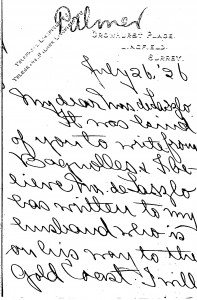 Palmer
CROWHURST PLACE,
LINGFIELD,
SURREY.
July 26. '26
My dear Mrs. de Laszlo
It was kind
of you to write from
Bagnolles & I be-
lieve Mr. de Laszlo
has written to my
husband who is
on his way to the
Gold Coast. I will